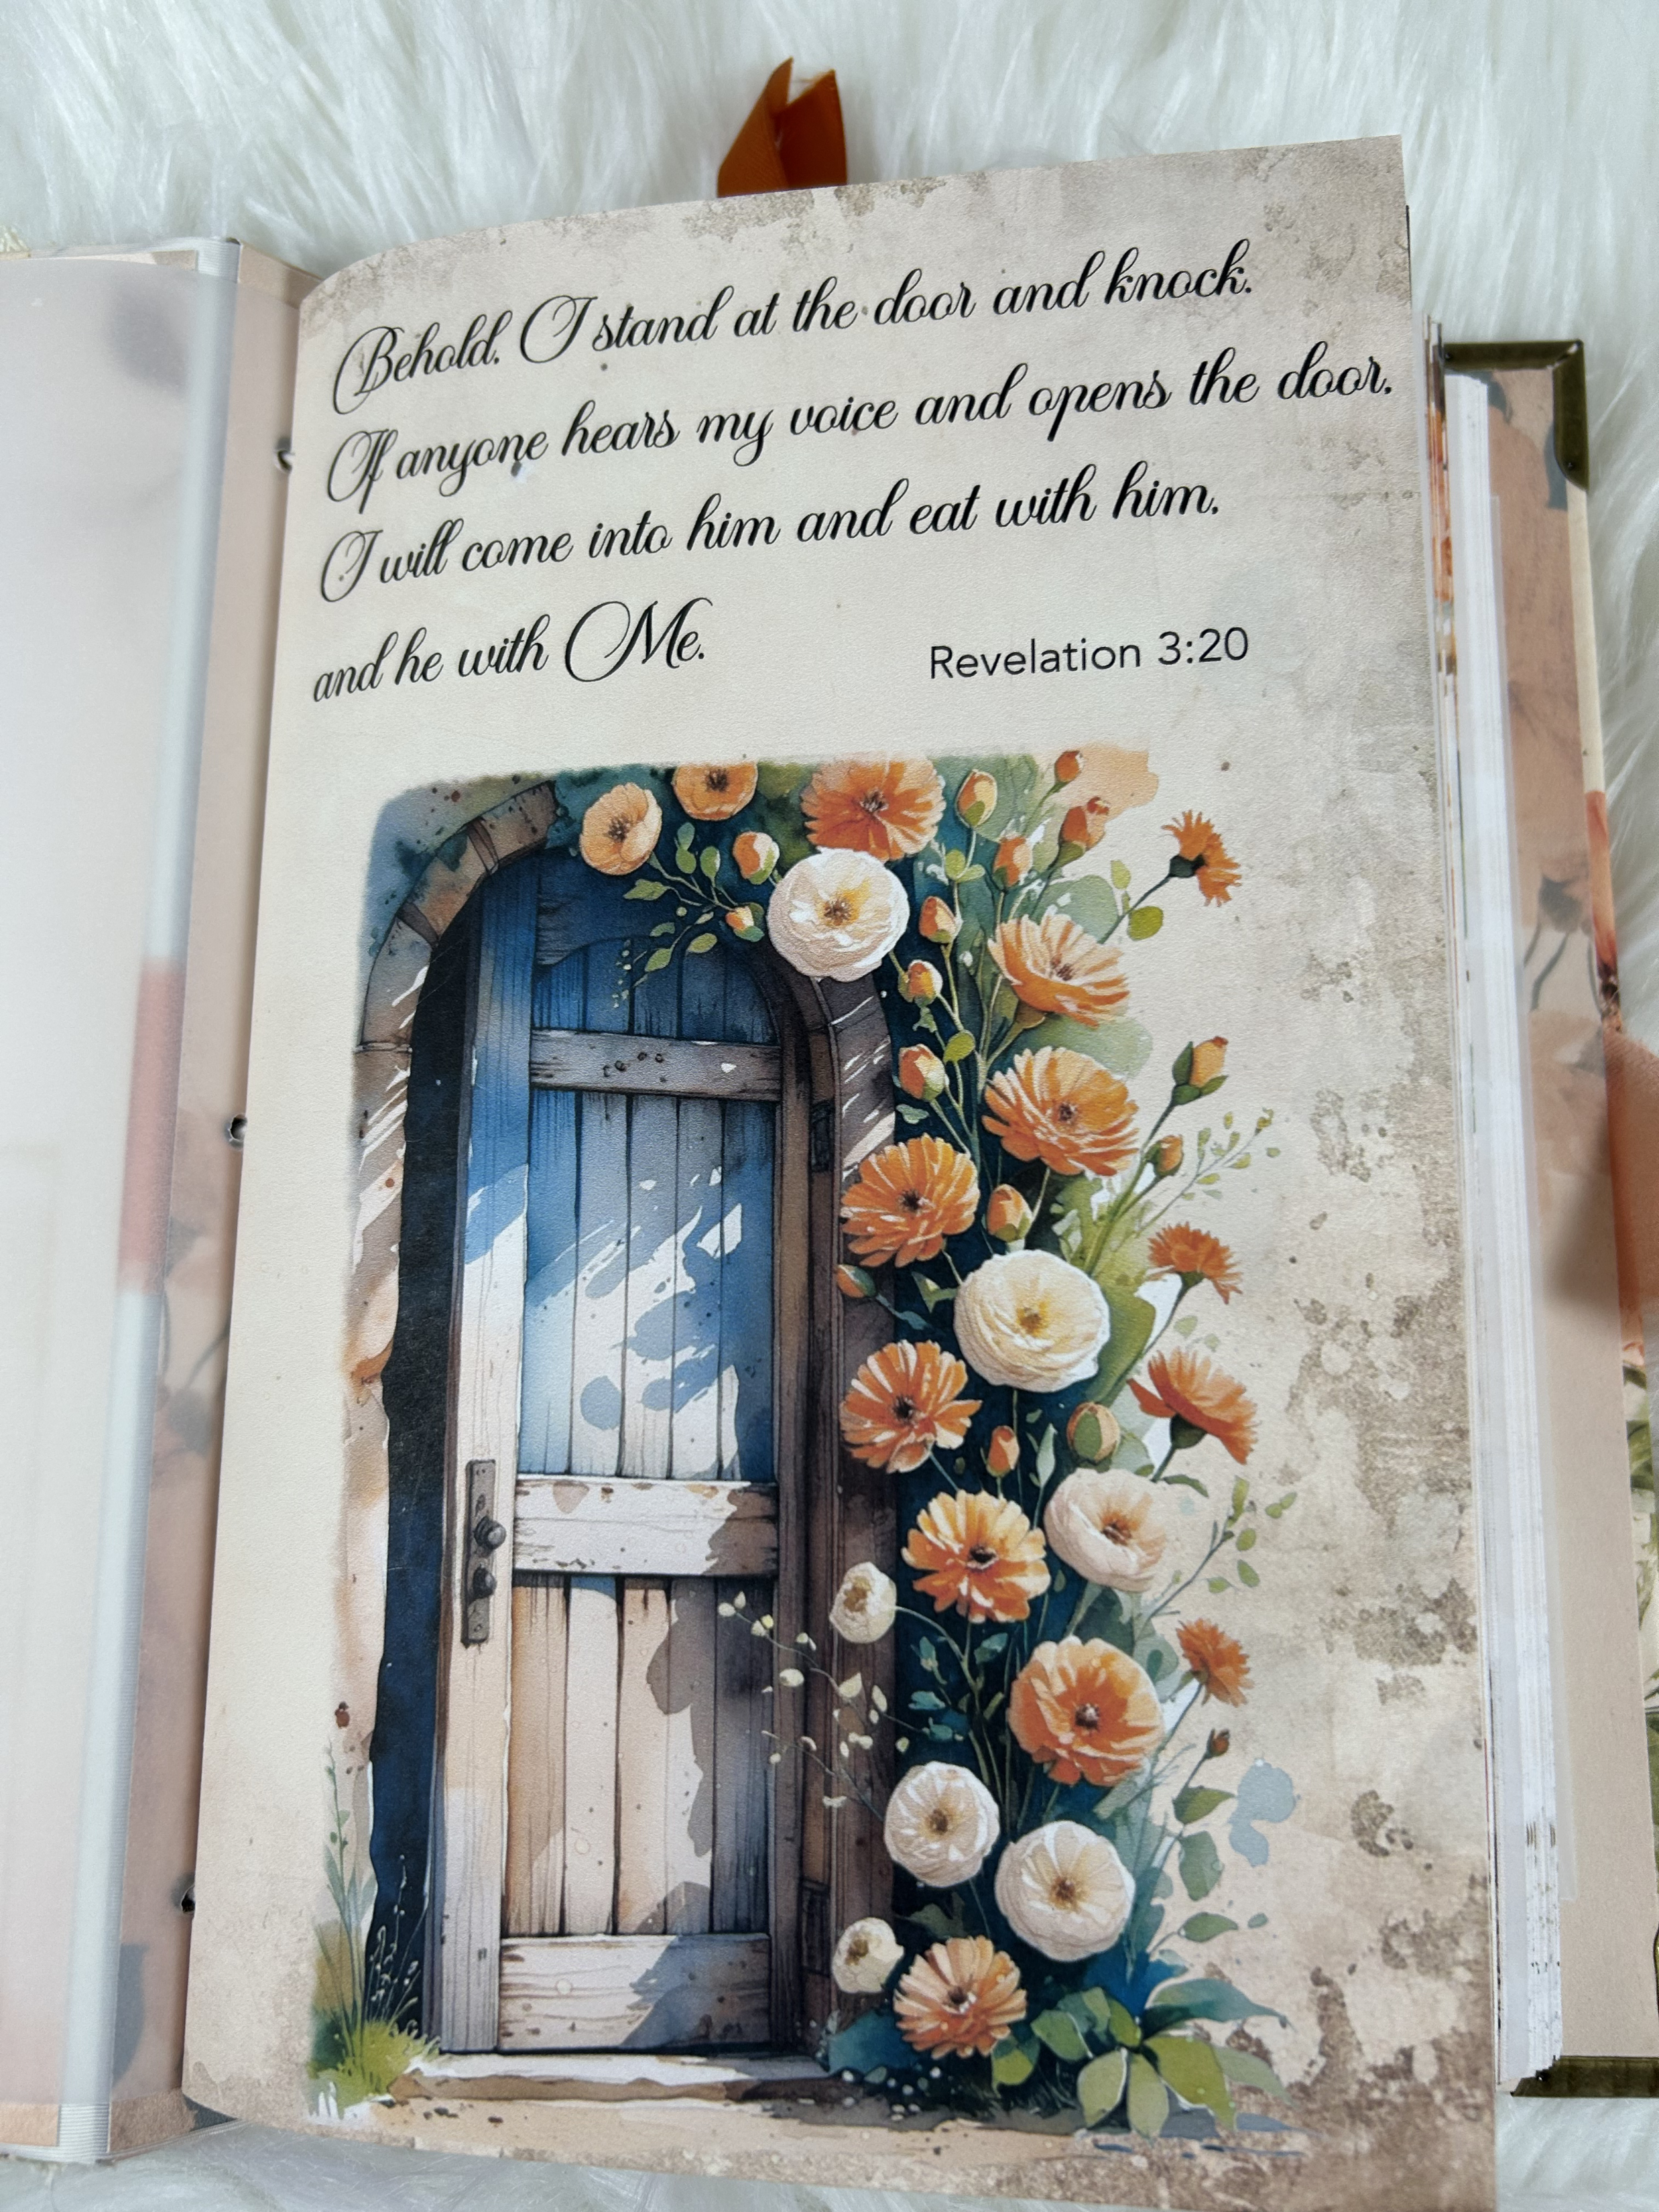 Behold. I stand at the door and knock.
If anyone hears my voice and opens the door.
I will come into him and eat with him.
and he with Me.
Revelation 3:20